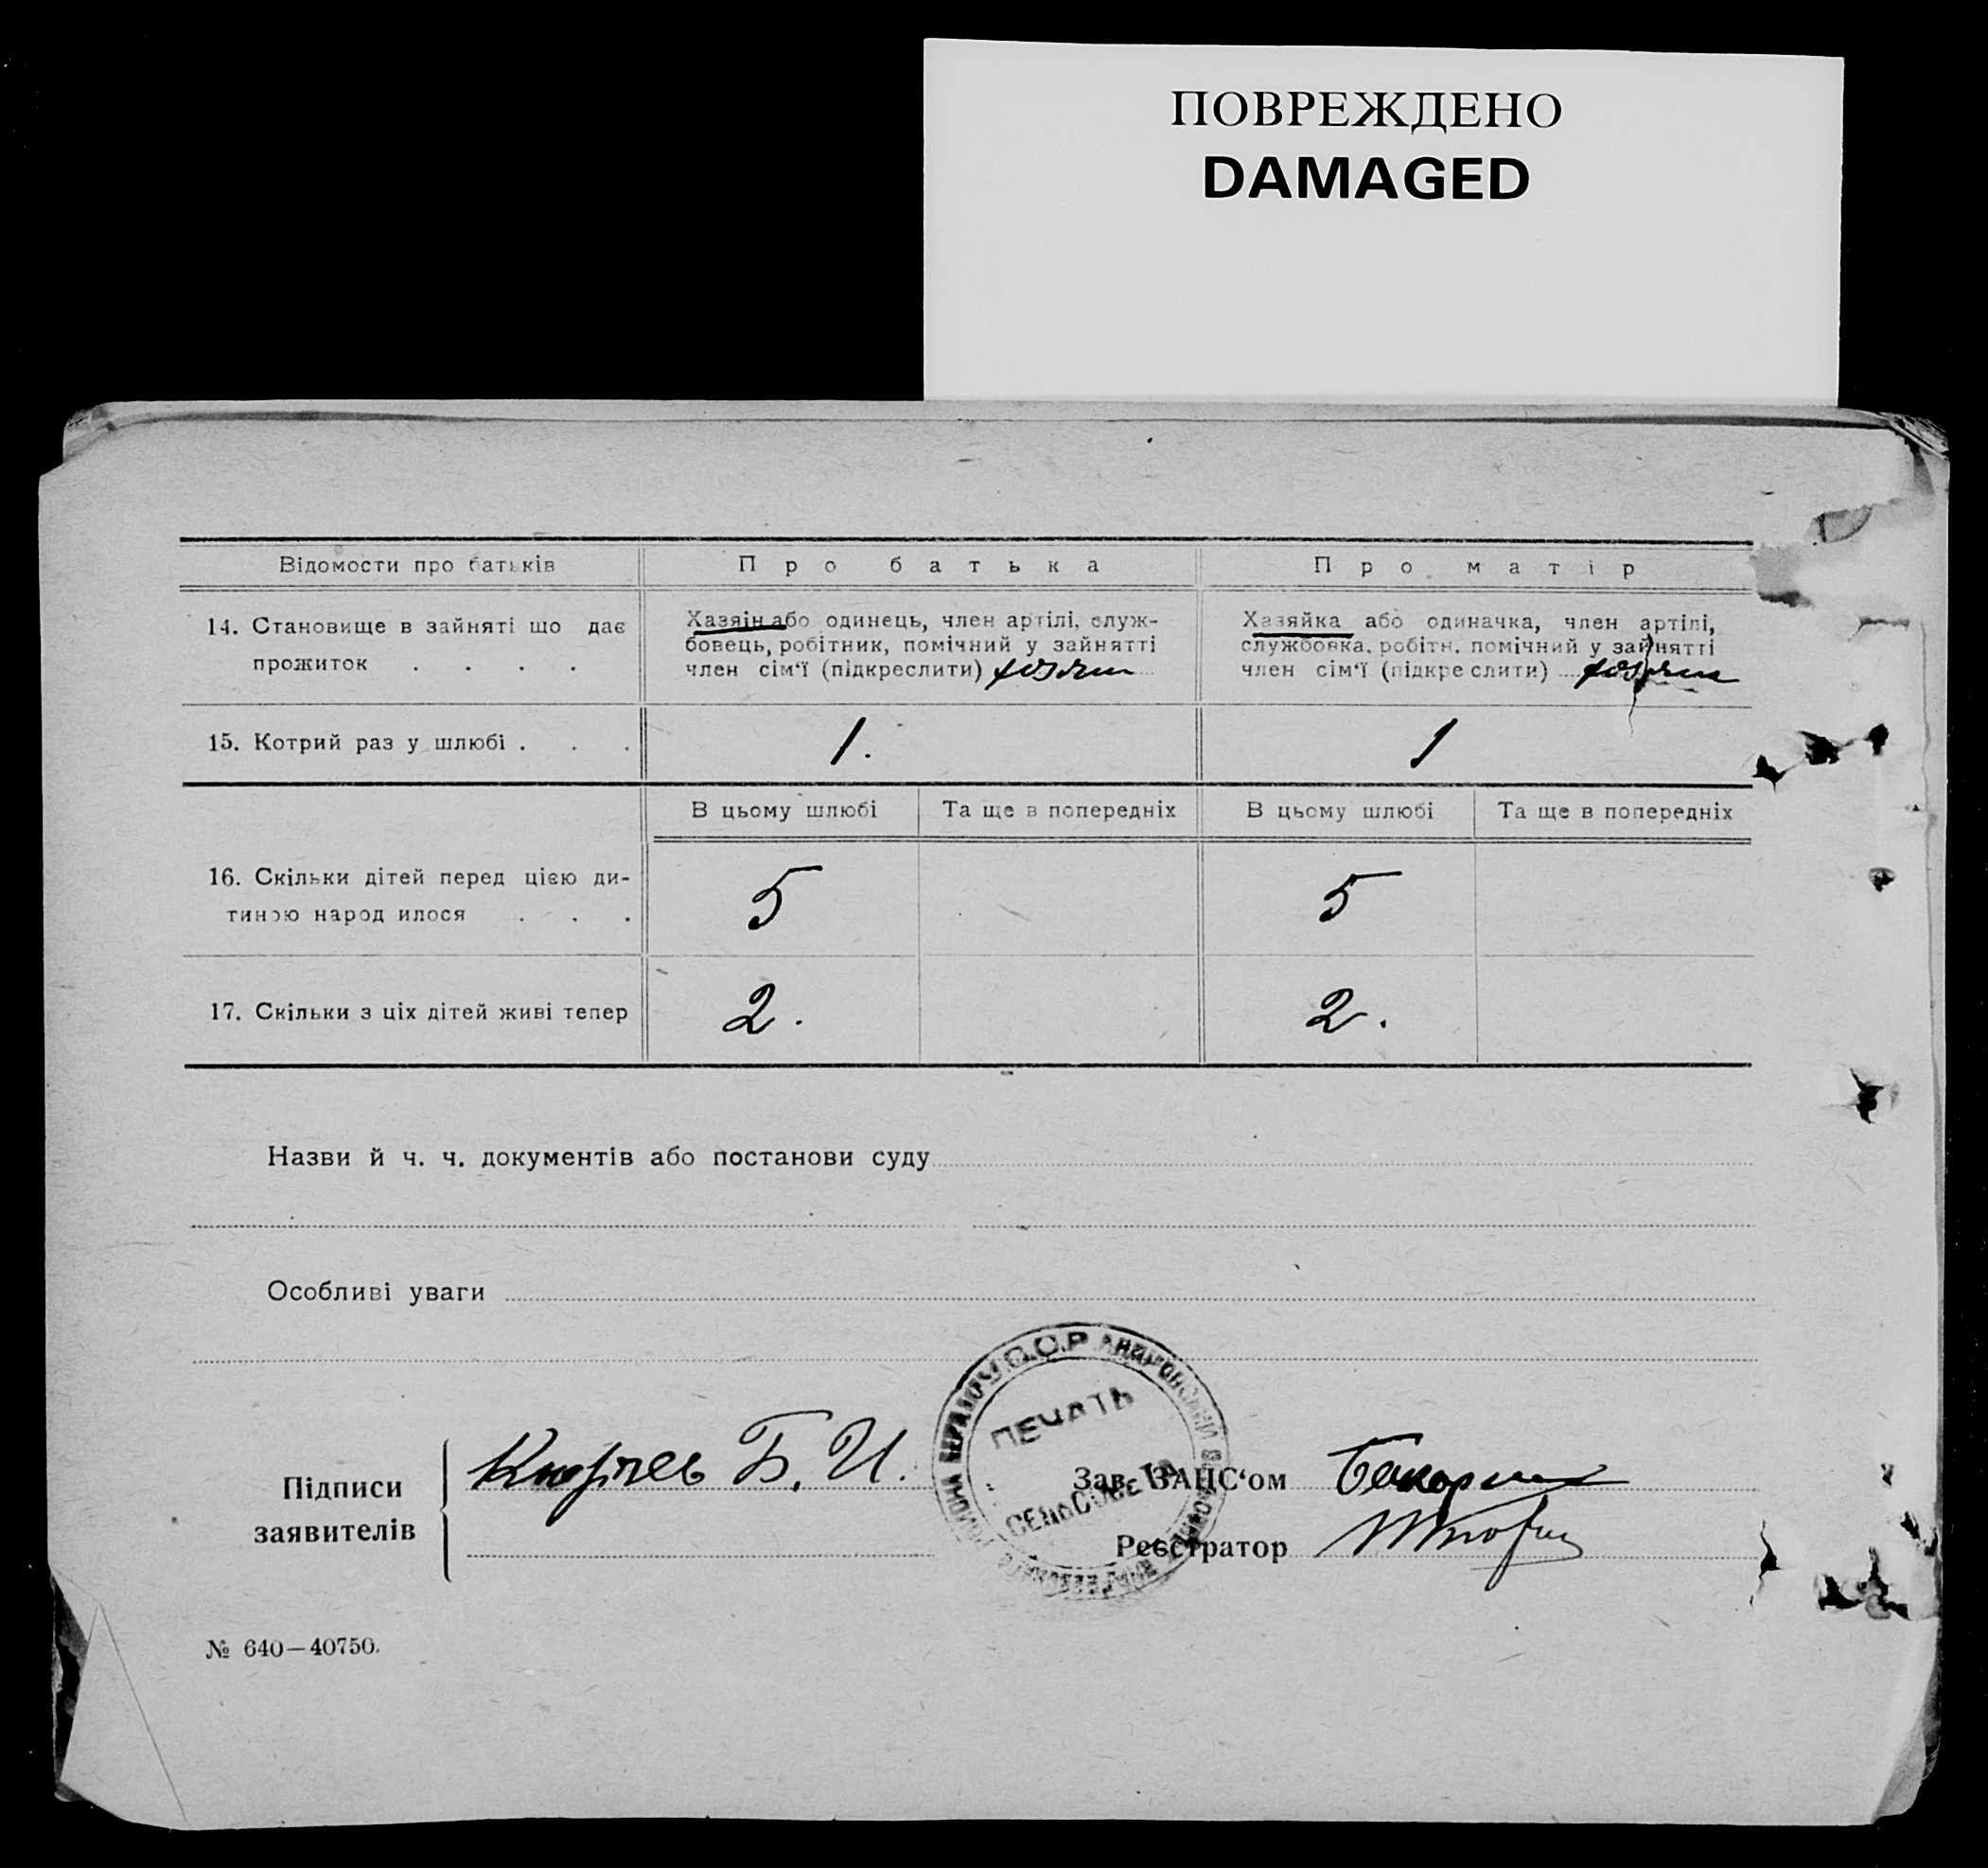 ПОВРЕЖДЕНО
DAMAGED
Відомости про батьків
Про батька
Про матір
14. Становище в зайняті що дає
прожиток . . . .
Хазяін або одинець, член артілі, служ-
бовець, робітник, помічний у зайнятті
член сім'ї (підкреслити)
Хазяйка або одиначка, член артілі,
службовка, робітн. помічний у зайнятті
член сім'ї (підкреслити)
15. Котрий раз у шлюбі . . .
1.
1
В цьому шлюбі
Та ще в попередніх
В цьому шлюбі
Та ще в попередніх
16. Скільки дітей перед цією ди-
тиною народилося . . .
5
5
17. Скільки з ціх дітей живі тепер
2.
2.
Назви й ч. ч. документів або постанови суду
Особливі уваги
У.С.С.Р
ПЕЧАТЬ
СЕЛЬСОВЕТА
Підписи
заявителів
Б. И.
Зав. ЗАПС'ом
Реєстратор
№ 640—40750.